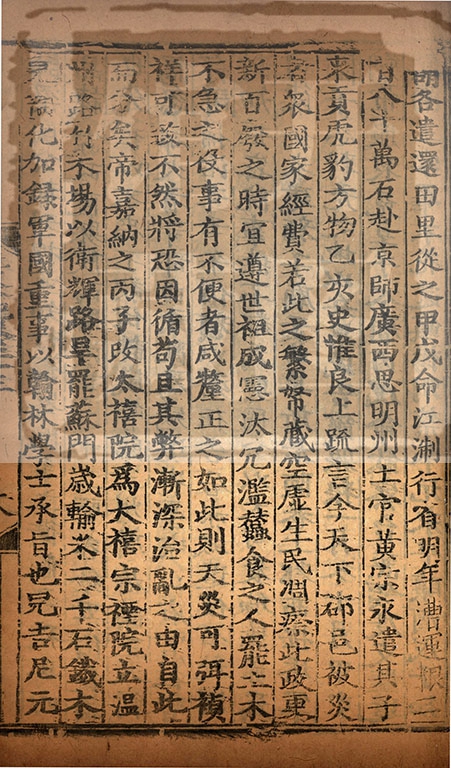 朝各遣還田里從之甲戊命江浙行省明年漕運粮二
百八十萬石赴京師廣西思明州土官黃宗永遣其子
來貢虎豹方物乙亥史惟良上疏言今天下郡邑被災
者衆國家經費若此之繁帑藏空虛生民凋瘵此政更
新百廢之時宜遵世祖成憲汰冗濫蠶食之人罷土木
不急之役事有不便者咸釐正之如此則天災可弭禎
祥可致不然將恐因循苟且其弊漸深治亂之由自此
而分矣帝嘉納之丙子改太禧院爲大禧宗禋院立温
州路竹木場以衛輝路旱罷蘇門歲輸米二千石鐵木
兒補化加録軍國重事以翰林學士承旨也兄吉尼元